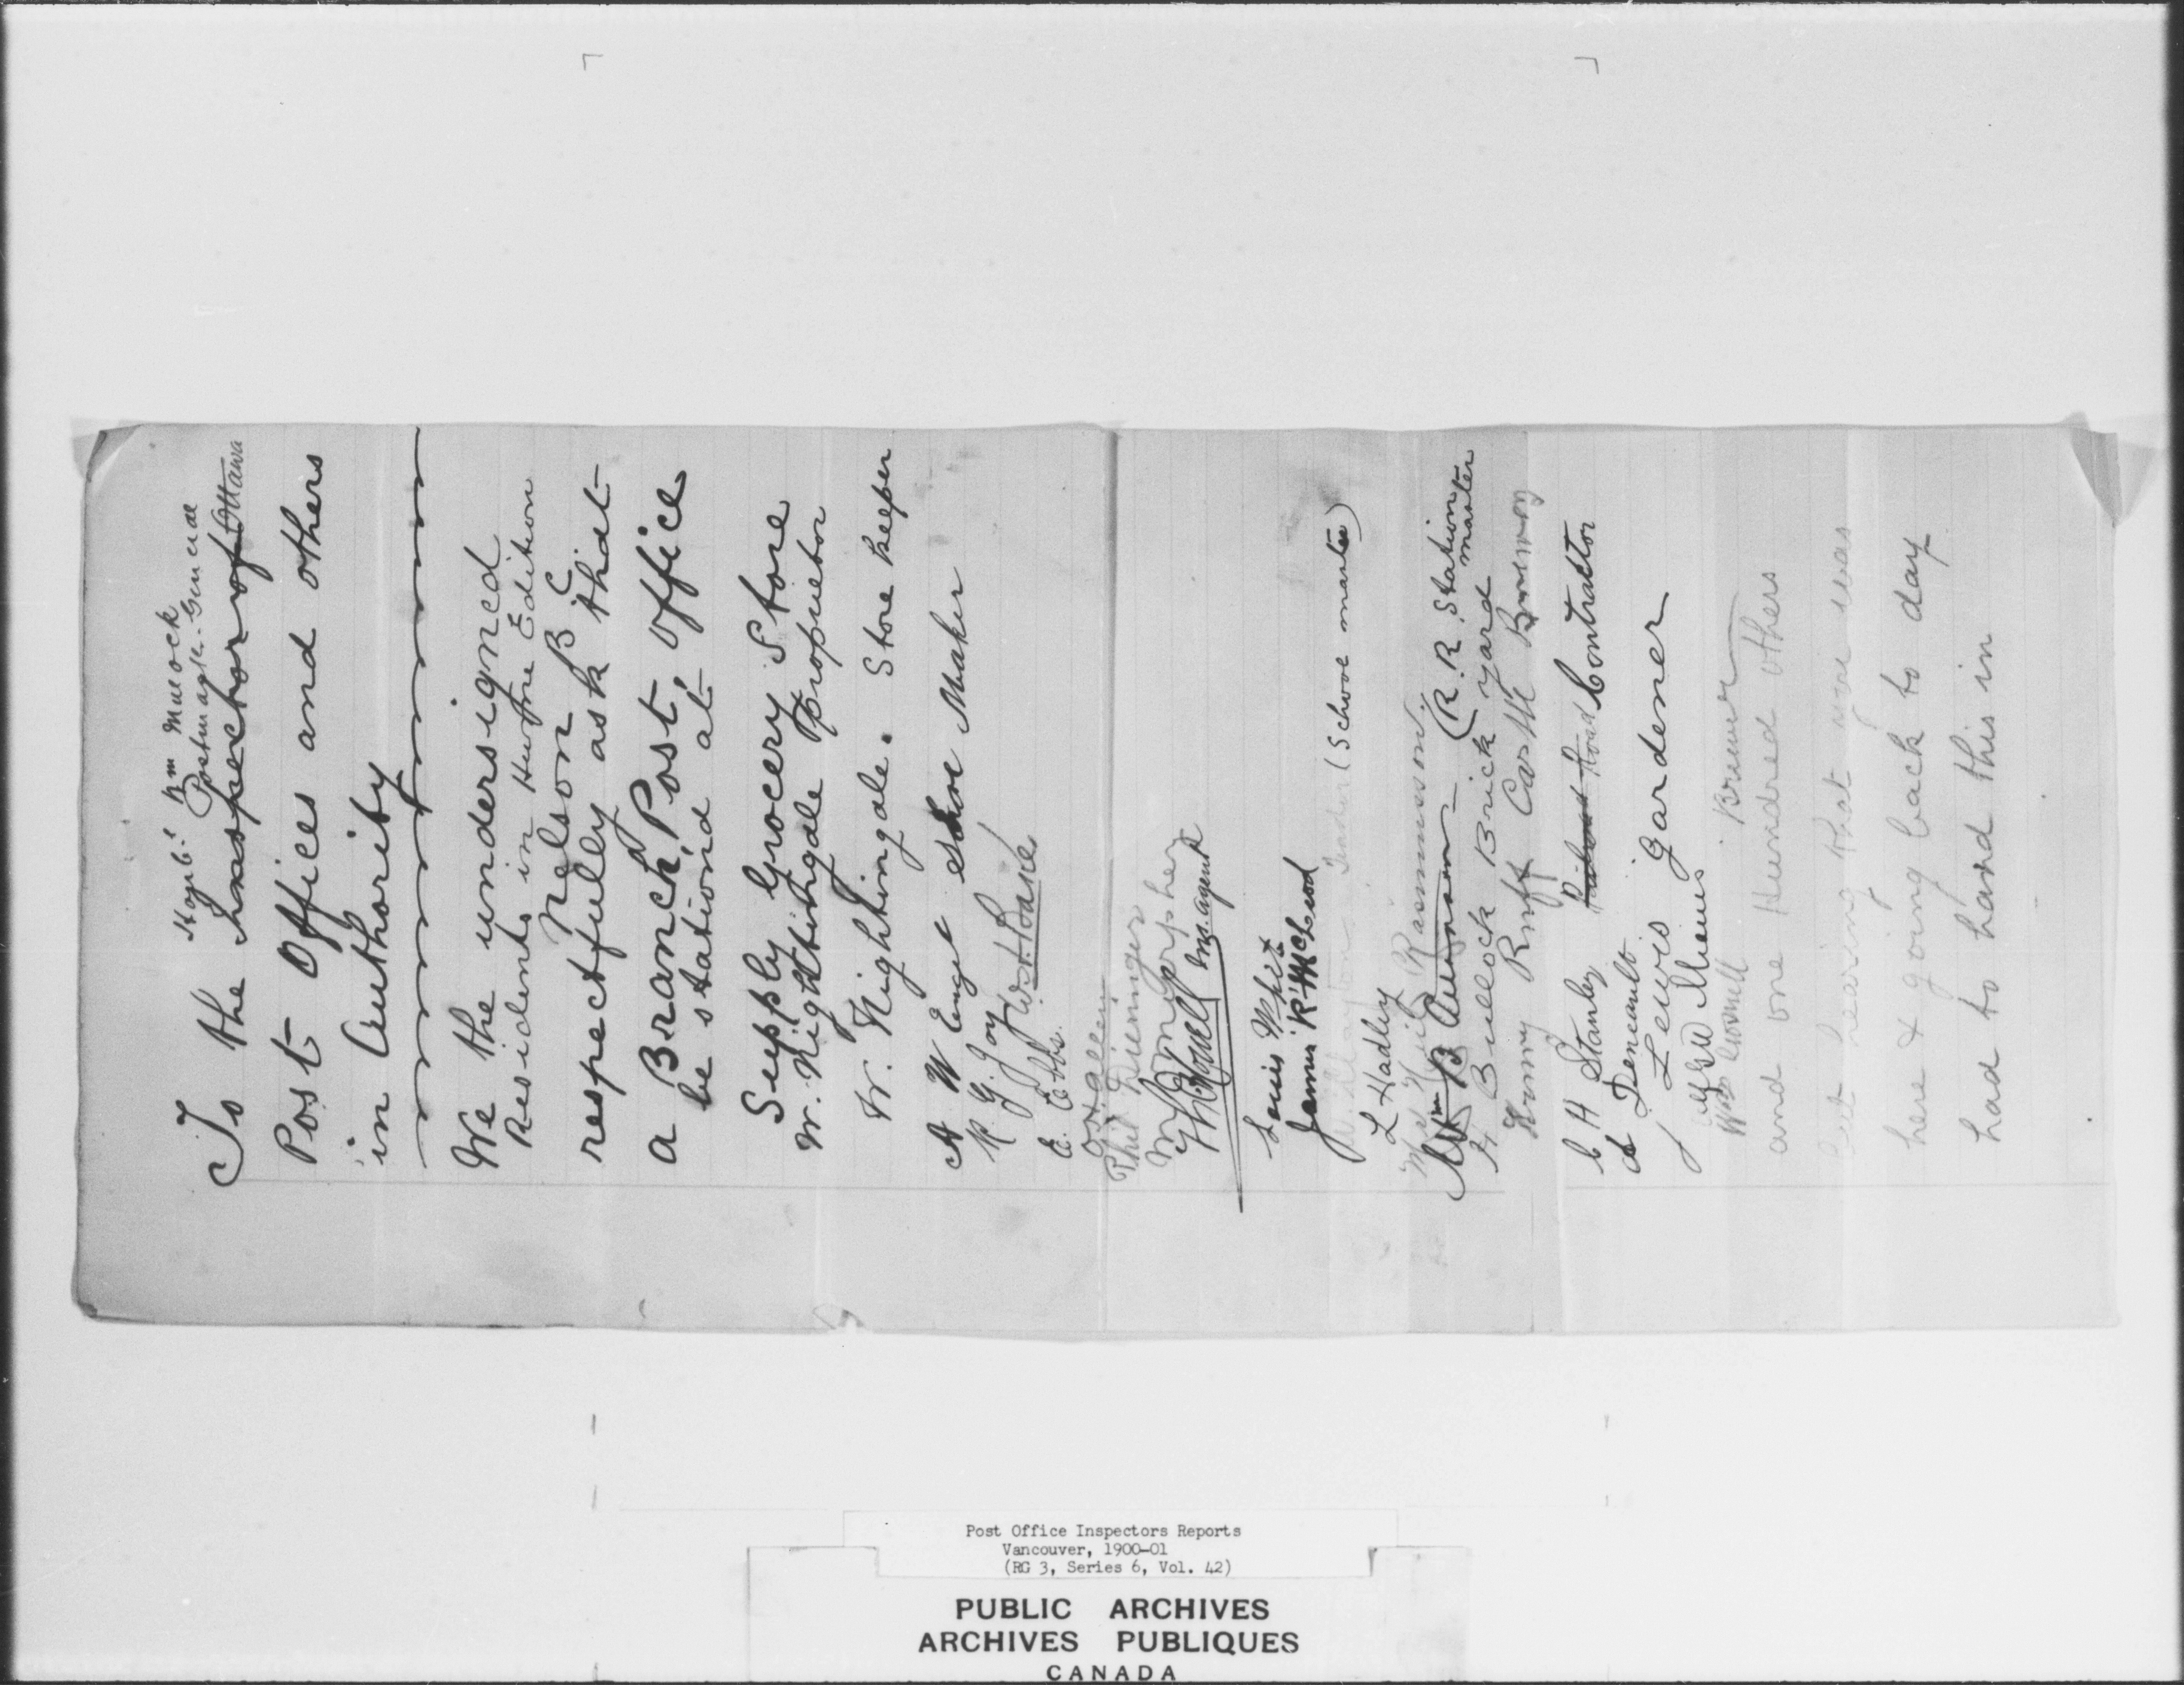 Honble Wm Mulock
Postmaster General
To the Inspector of Ottawa
Post Offices and others
in Authority
We the undersigned
Residents in Hume Edition
Nelson B C
respectfully ask that
a Branch Post, office
be stationd at
Supply Grocery Store
W. Nightingale Proprietor
W. Nightingale. Store Keeper
A W Engel Shoe Maker
R. G. Joy
E. Ebbs.
Phil
Ins. agent
Louis
James R McLeod
(School master)
L Hadley
Rasmusson
Wm B (R. R. Station master
H Bullock Brick yard
Henry Ruff Castle Brewery
C H Stanley Contractor
A Deneault
J Lewis Gardener
Brewer
and one Hundred others
but hearing that you was
here & going back to day
had to hand this in
Post Office Inspectors Reports
Vancouver, 1900-01
(RG 3, Series 6, Vol. 42)
PUBLIC ARCHIVES
ARCHIVES PUBLIQUES
CANADA